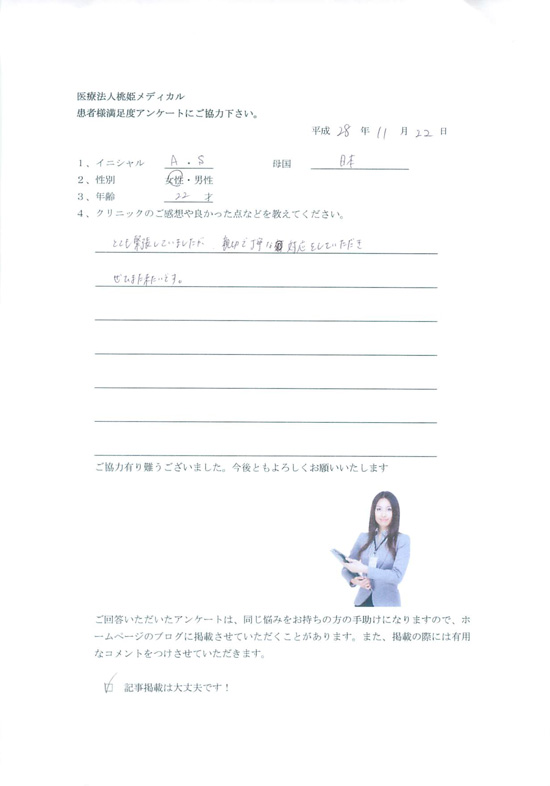 医療法人桃姫メディカル
患者様満足度アンケートにご協力下さい。
平成 28 年 11 月 22 日
1、イニシャル A . S 母国 日本
2、性別 女性・男性
3、年齢 22 才
4、クリニックのご感想や良かった点などを教えてください。
とても緊張していましたが、親切で丁寧な対応をしていただき
ぜひまた来たいです。
ご協力有り難うございました。今後ともよろしくお願いいたします
ご回答いただいたアンケートは、同じ悩みをお持ちの方の手助けになりますので、ホ
ームページのブログに掲載させていただくことがあります。また、掲載の際には有用
なコメントをつけさせていただきます。
記事掲載は大丈夫です！